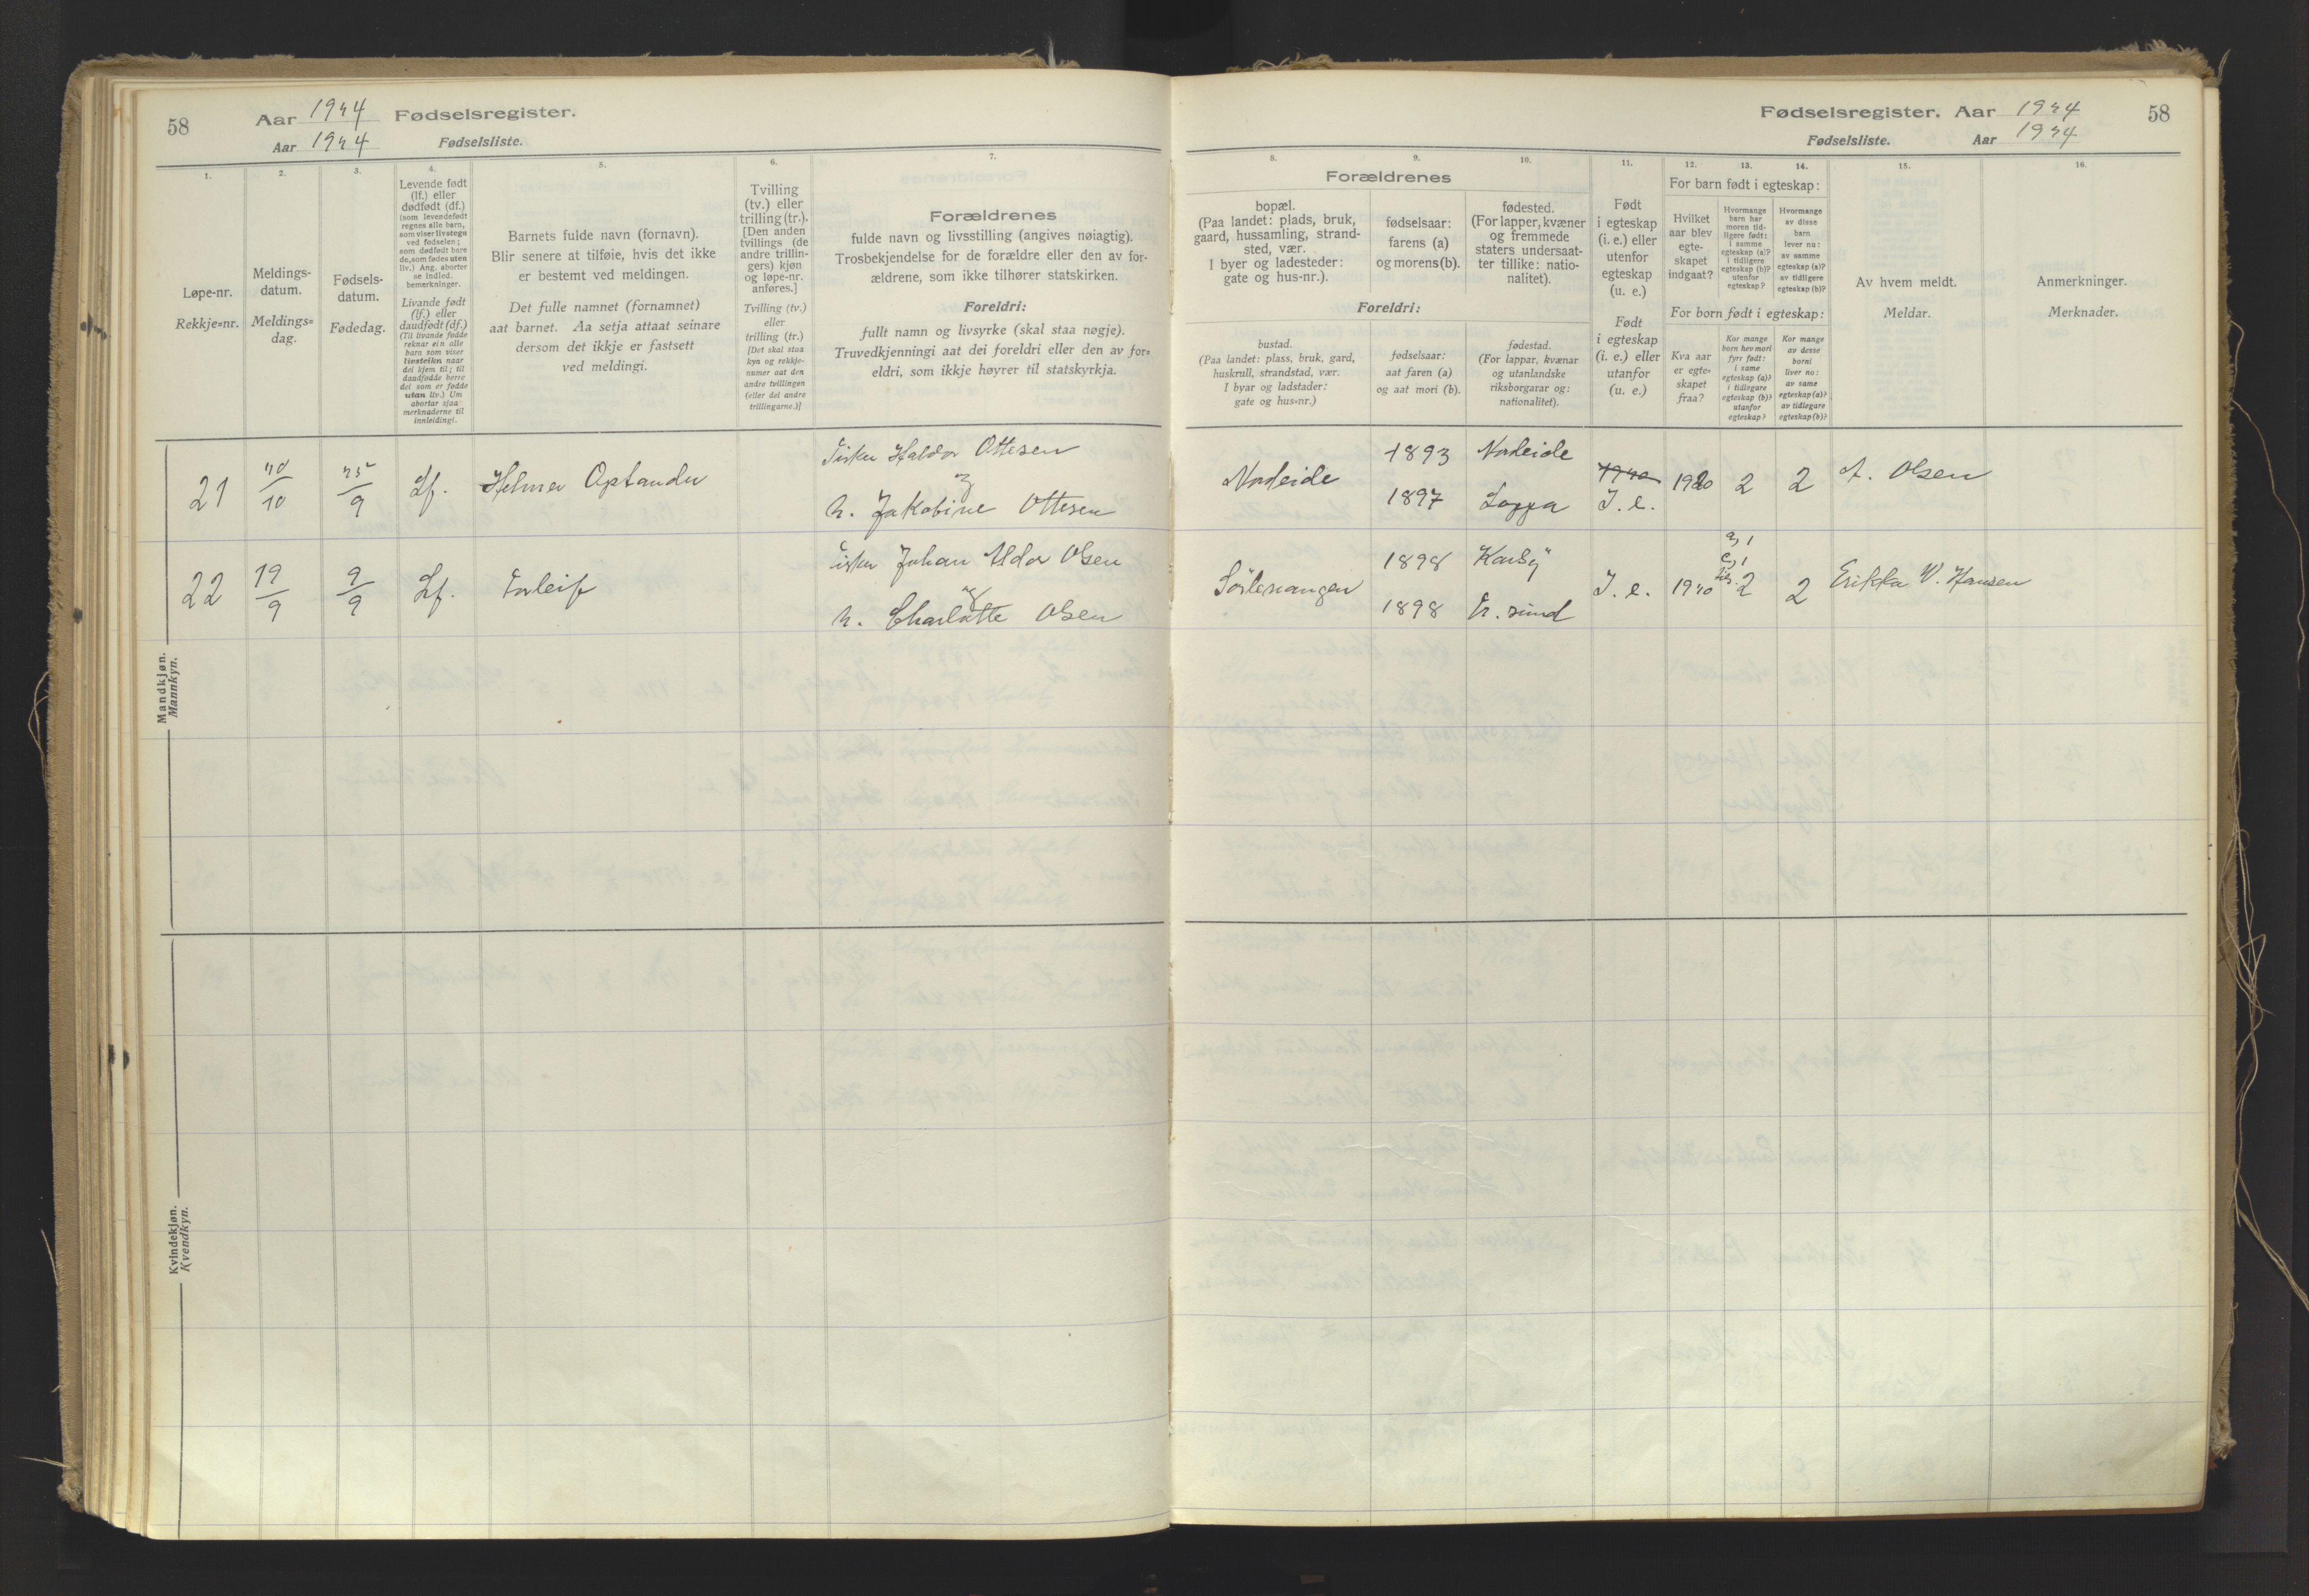 58
Aar 1924 Fødselsregister.
Aar 1924 Fødselsliste.
1.
Løpe-nr.
Rekkje=nr.
2.
Meldings-
datum.
Meldings=
dag.
3.
Fødsels-
datum.
Fødedag.
4.
Levende født
(lf.) eller
dødfødt (df.)
(som levendefødt
regnes alle barn,
som viser livstegn
ved fødselen;
som dødfødt bare
de, som fødes uten
liv.) Ang. aborter
se indled.
bemerkninger.
Livande født
(lf.) eller
daudfødt (df.)
(Til livande fødde
reknar ein alle
barn som viser
livsteikn naar
dei kjem til; til
daudfødde berre
dei som er fødde
utan liv.) Um
abortar sjaa
merknaderne til
innleidingi.
5.
Barnets fulde navn (fornavn).
Blir senere at tilføie, hvis det ikke
er bestemt ved meldingen.
Det fulle namnet (fornamnet)
aat barnet. Aa setja attaat seinare
dersom det ikkje er fastsett
ved meldingi.
6.
Tvilling
(tv.) eller
trilling (tr.).
[Den anden
tvillings (de
andre trillin-
gers) kjøn
og løpe-nr.
anføres.]
Tvilling (tv.)
eller
trilling (tr.)
[Det skal staa
kyn og rekkje-
numer aat den
andre tvillingen
(eller dei andre
trillingarne.)]
7.
Forældrenes
fulde navn og livsstilling (angives nøiagtig).
Trosbekjendelse for de forældre eller den av for-
ældrene, som ikke tilhører statskirken.
Foreldri:
fullt namn og livsyrke (skal staa nøgje).
Truvedkjenningi aat dei foreldri eller den av for=
eldri, som ikkje høyrer til statskyrkja.
21 20/10 25/9 Lf. Helmer
Fisker Haldor Ottesen
og
h. Jakobine Ottesen
22 19/9 9/9 Lf. Torleif
Fisker Johan Aldor Olsen
og
h. Charlotte Olsen
Mandkjøn.
Mannkyn.
Kvindekjøn.
Kvendkyn.
Fødselsregister. Aar 1924
58
Fødselsliste. Aar 1924
8.
9.
10.
Forældrenes
bopæl.
(Paa landet: plads, bruk,
gaard, hussamling, strand-
sted, vær.
I byer og ladesteder:
gate og hus-nr.).
fødselsaar:
farens (a)
og morens (b).
fødested.
(For lapper, kvæner
og fremmede
staters undersaat-
ter tillike: natio-
nalitet).
Foreldri:
bustad.
(Paa landet: plass, bruk, gard,
huskrull, strandstad, vær.
I byar og ladstader:
gate og hus=nr.)
fødselsaar:
aat faren (a)
og aat mori (b).
fødestad.
(For lappar, kvænar
og utanlandske
riksborgarar og:
nationalitet).
11.
Født
i egteskap
(i. e.) eller
utenfor
egteskap
(u. e.)
Født
i egteskap
(i. e.) eller
utanfor
(u. e.)
12.
13.
14.
For barn født i egteskap:
Hvilket
aar blev
egte-
skapet
indgaat?
Hvormange
barn har
moren tid-
ligere født:
i samme
egteskap (a)?
i tidligere
egteskap (b)?
utenfor
egteskap?
Hvormange
av disse
barn
lever nu:
av samme
egteskap (a)?
av tidligere
egteskap (b)?
For born født i egteskap:
Kva aar
er egte=
skapet
fraa?
Kor mange
born hev mori
fyrr født:
i same
egteskap (a)?
i tidlegare
egteskap (b)?
utanfor
egteskap?
Kor mange
av desse
borni
liver no:
av same
egteskap (a)?
av tidlegare
egteskap (b)?
15.
Av hvem meldt.
Meldar.
16.
Anmerkninger.
Merknader.
Nordeide
1893 Nordeide
1897 Loppa
1920
I. e. 1920 2 2 A. Olsen
Sörlenangen
1898 Karlsöy
1898 Gr. sund
I. e. 1920 2 2 Erikka W. Hansen